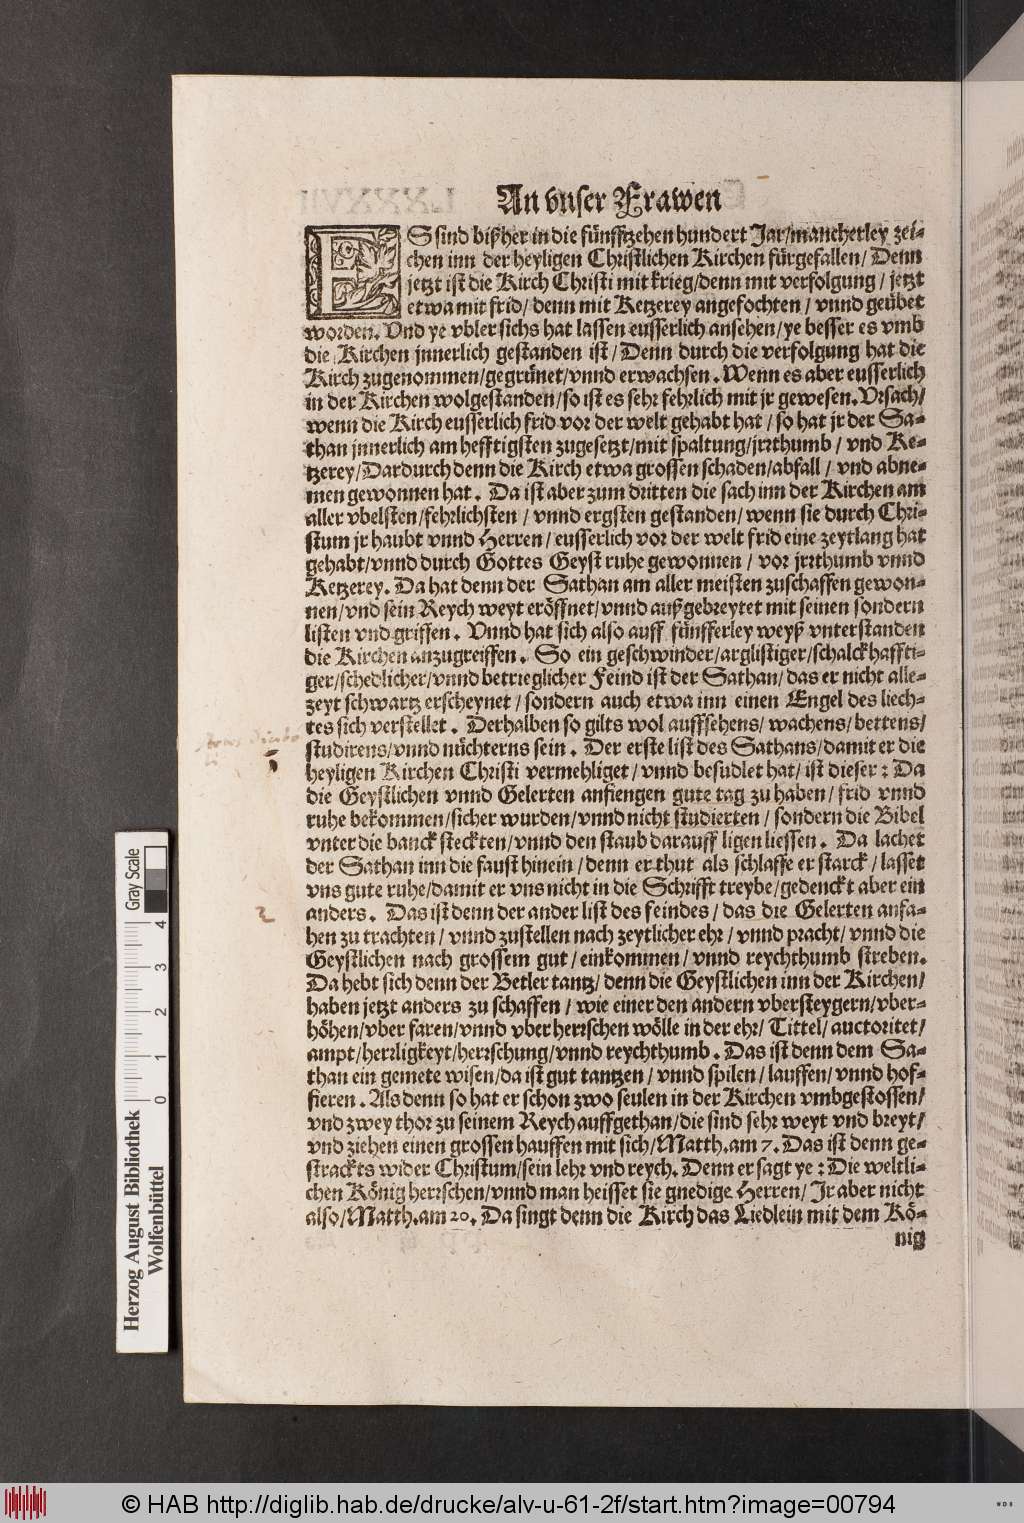 An vnser Frawen
ES sind bißher in die fünfftzehen hundert Jar/mancherley zei-
chen inn der heyligen Christlichen Kirchen fürgefallen/ Denn
jetzt ist die Kirch Christi mit krieg/denn mit verfolgung / jetzt
etwa mit frid/ denn mit Ketzerey angefochten / vnnd geübet
worden. Vnd ye vbler sichs hat lassen eusserlich ansehen/ye besser es vmb
die Kirchen jnnerlich gestanden ist/ Denn durch die verfolgung hat die
Kirch zugenommen/gegrünet/vnnd erwachsen. Wenn es aber eusserlich
in der Kirchen wolgestanden/so ist es sehr fehrlich mit jr gewesen. Vrsach/
wenn die Kirch eusserlich frid vor der welt gehabt hat / so hat jr der Sa-
than jnnerlich am hefftigsten zugesetzt/mit spaltung/jrrthumb / vnd Ke-
tzerey/Dardurch denn die Kirch etwa grossen schaden/abfall / vnd abne-
men gewonnen hat. Da ist aber zum dritten die sach inn der Kirchen am
aller vbelsten/fehrlichsten / vnnd ergsten gestanden/ wenn sie durch Chri-
stum jr haubt vnnd Herren/ eusserlich vor der welt frid eine zeytlang hat
gehabt/vnnd durch Gottes Geyst ruhe gewonnen / vor jrrthumb vnnd
Ketzerey. Da hat denn der Sathan am aller meisten zuschaffen gewon-
nen/vnd sein Reych weyt eröffnet/vnnd außgebreytet mit seinen sondern
listen vnd griffen. Vnnd hat sich also auff fünfferley weyß vnterstanden
die Kirchen anzugreiffen. So ein geschwinder/arglistiger/schalckhaffti-
ger/schedlicher/vnnd betrieglicher Feind ist der Sathan/ das er nicht alle-
zeyt schwartz erscheynet / sondern auch etwa inn einen Engel des liech-
tes sich verstellet. Derhalben so gilts wol auffsehens/ wachens/ bettens/
studirens/vnnd nüchterns sein. Der erste list des Sathans/damit er die
heyligen Kirchen Christi vermehliget / vnnd besudlet hat/ ist dieser: Da
die Geystlichen vnnd Gelerten anfiengen gute tag zu haben/ frid vnnd
ruhe bekommen/sicher wurden/vnnd nicht studierten / sondern die Bibel
vnter die banck steckten/vnnd den staub darauff ligen liessen. Da lachet
der Sathan inn die faust hinein / denn er thut als schlaffe er starck / lasset
vns gute ruhe/damit er vns nicht in die Schrifft treybe/gedenckt aber ein
2
anders. Das ist denn der ander list des feindes / das die Gelerten anfa-
hen zu trachten / vnnd zustellen nach zeytlicher ehr / vnnd pracht/ vnnd die
Geystlichen nach grossem gut / einkommen / vnnd reychthumb streben.
Da hebt sich denn der Betler tantz/ denn die Geystlichen inn der Kirchen/
haben jetzt anders zu schaffen / wie einer den andern vbersteygern/vber-
höhen/vber faren/vnnd vber herrschen wölle in der ehr/ Tittel/ auctoritet/
ampt/herrligkeyt/herrschung/vnnd reychthumb. Das ist denn dem Sa-
than ein gemete wisen/da ist gut tantzen / vnnd spilen / lauffen/ vnnd hof-
fieren. Als denn so hat er schon zwo seulen in der Kirchen vmbgestossen/
vnd zwey thor zu seinem Reych auffgethan/die sind sehr weyt vnd breyt/
vnd ziehen einen grossen hauffen mit sich/Matth.am 7. Das ist denn ge-
strackts wider Christum/sein lehr vnd reych. Denn er sagt ye: Die weltli-
chen König herrschen/vnnd man heisset sie gnedige Herren/ Jr aber nicht
also/Matth.am 20. Da singt denn die Kirch das Liedlein mit dem Kö-
nig
Gray Scale
0 1 2 3 4
Herzog August Bibliothek
Wolfenbüttel
© HAB http://diglib.hab.de/drucke/alv-u-61-2f/start.htm?image=00794